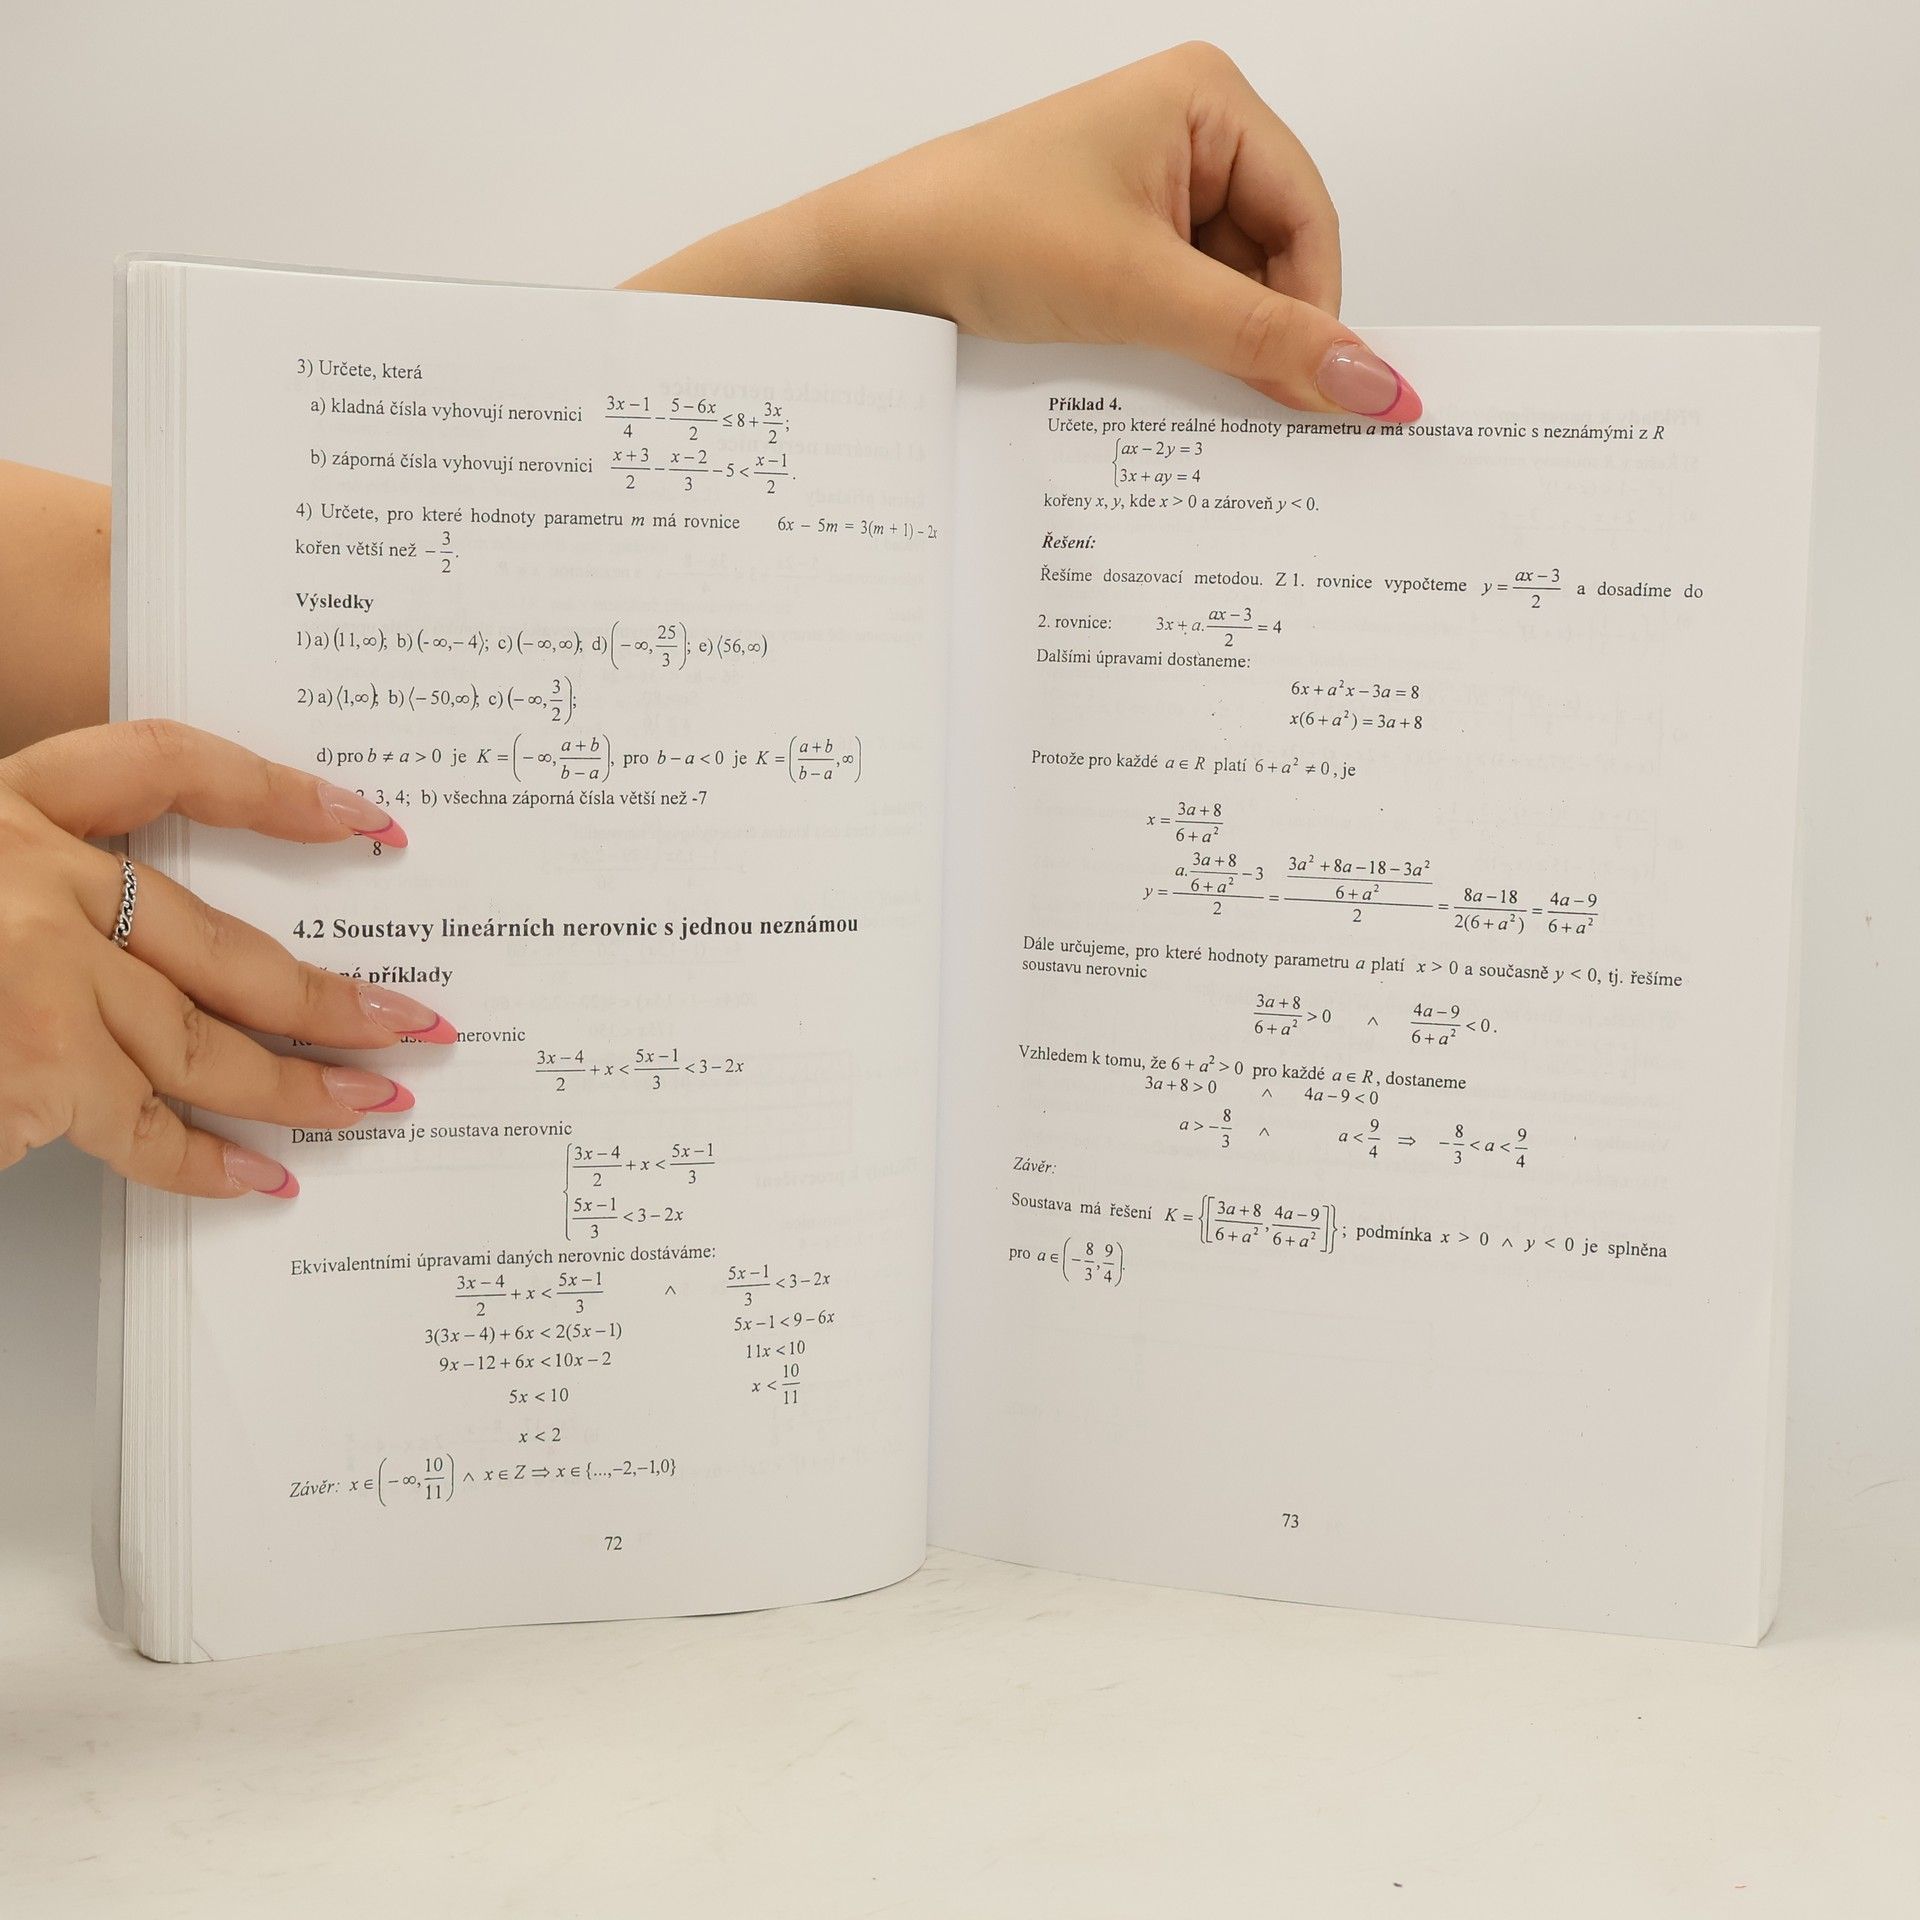 3) Určete, která
a) kladná čísla vyhovují nerovnici (3x−1)/4 − (5−6x)/2 ≤ 8 + 3x/2;
b) záporná čísla vyhovují nerovnici (x+3)/2 − (x−2)/3 − 5 < (x−1)/2.
4) Určete, pro které hodnoty parametru m má rovnice 6x − 5m = 3(m + 1) − 2x
kořen větší než −3/2.
Výsledky
1) a) (11,∞); b) (-∞,−4⟩; c) (−∞,∞); d) (−∞, 25/3); e) ⟨56,∞)
2) a) ⟨1,∞); b) ⟨−50,∞); c) (−∞, 3/2);
d) pro b ≠ a > 0 je K = (−∞, (a+b)/(b−a)), pro b−a < 0 je K = ((a+b)/(b−a), ∞)
3, 4; b) všechna záporná čísla větší než -7
8
4.2 Soustavy lineárních nerovnic s jednou neznámou
příklady
nerovnic
(3x−4)/2 + x < (5x−1)/3 < 3−2x
Daná soustava je soustava nerovnic
{ (3x−4)/2 + x < (5x−1)/3
(5x−1)/3 < 3−2x
Ekvivalentními úpravami daných nerovnic dostáváme:
(3x−4)/2 + x < (5x−1)/3 ∧ (5x−1)/3 < 3−2x
3(3x−4)+6x < 2(5x−1) 5x−1 < 9−6x
9x−12+6x < 10x−2 11x < 10
5x < 10 x < 10/11
x < 2
Závěr: x ∈ (−∞, 10/11) ∧ x ∈ Z ⇒ x ∈ {...,−2,−1,0}
72
Příklad 4.
Určete, pro které reálné hodnoty parametru a má soustava rovnic s neznámými z R
{ ax − 2y = 3
3x + ay = 4
kořeny x, y, kde x > 0 a zároveň y < 0.
Řešení:
Řešíme dosazovací metodou. Z 1. rovnice vypočteme y = (ax−3)/2 a dosadíme do
2. rovnice: 3x + a.(ax−3)/2 = 4
Dalšími úpravami dostaneme:
6x + a²x − 3a = 8
x(6+a²) = 3a+8
Protože pro každé a ∈ R platí 6+a² ≠ 0, je
x = (3a+8)/(6+a²)
y = (a.(3a+8)/(6+a²) − 3)/2 = ((3a²+8a−18−3a²)/(6+a²))/2 = (8a−18)/(2(6+a²)) = (4a−9)/(6+a²)
Dále určujeme, pro které hodnoty parametru a platí x > 0 a současně y < 0, tj. řešíme
soustavu nerovnic
(3a+8)/(6+a²) > 0 ∧ (4a−9)/(6+a²) < 0.
Vzhledem k tomu, že 6 + a² > 0 pro každé a ∈ R, dostaneme
3a+8 > 0 ∧ 4a−9 < 0
a > −8/3 ∧ a < 9/4 ⇒ −8/3 < a < 9/4
Závěr:
Soustava má řešení K = {[(3a+8)/(6+a²), (4a−9)/(6+a²)]}; podmínka x > 0 ∧ y < 0 je splněna
pro a ∈ (−8/3, 9/4).
73